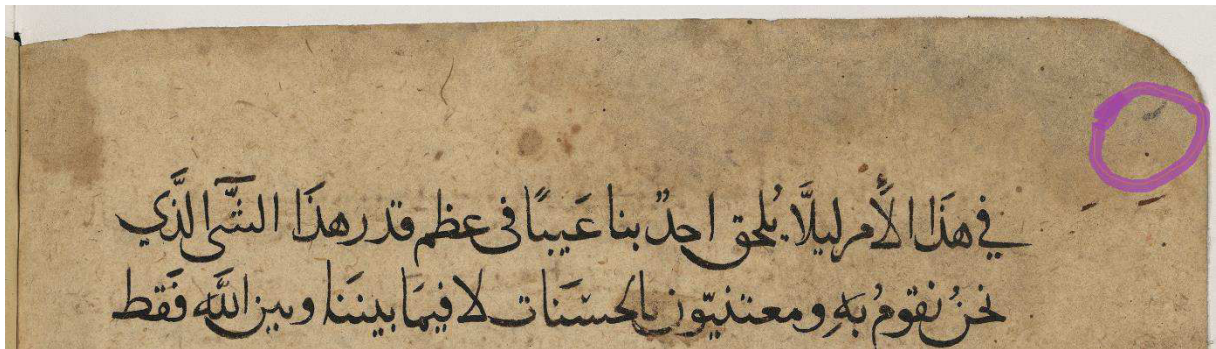 في هَذا الأَمر ليلَّا يُلحق احدٌ بنا عَيبًا فى عظم قدر هذَا الشَّى الذَّي
نحنُ نقومُ بهِ ومعتنيّون بالحسَنات لا فيمَا بيننَا وبين اللَّه فقَط